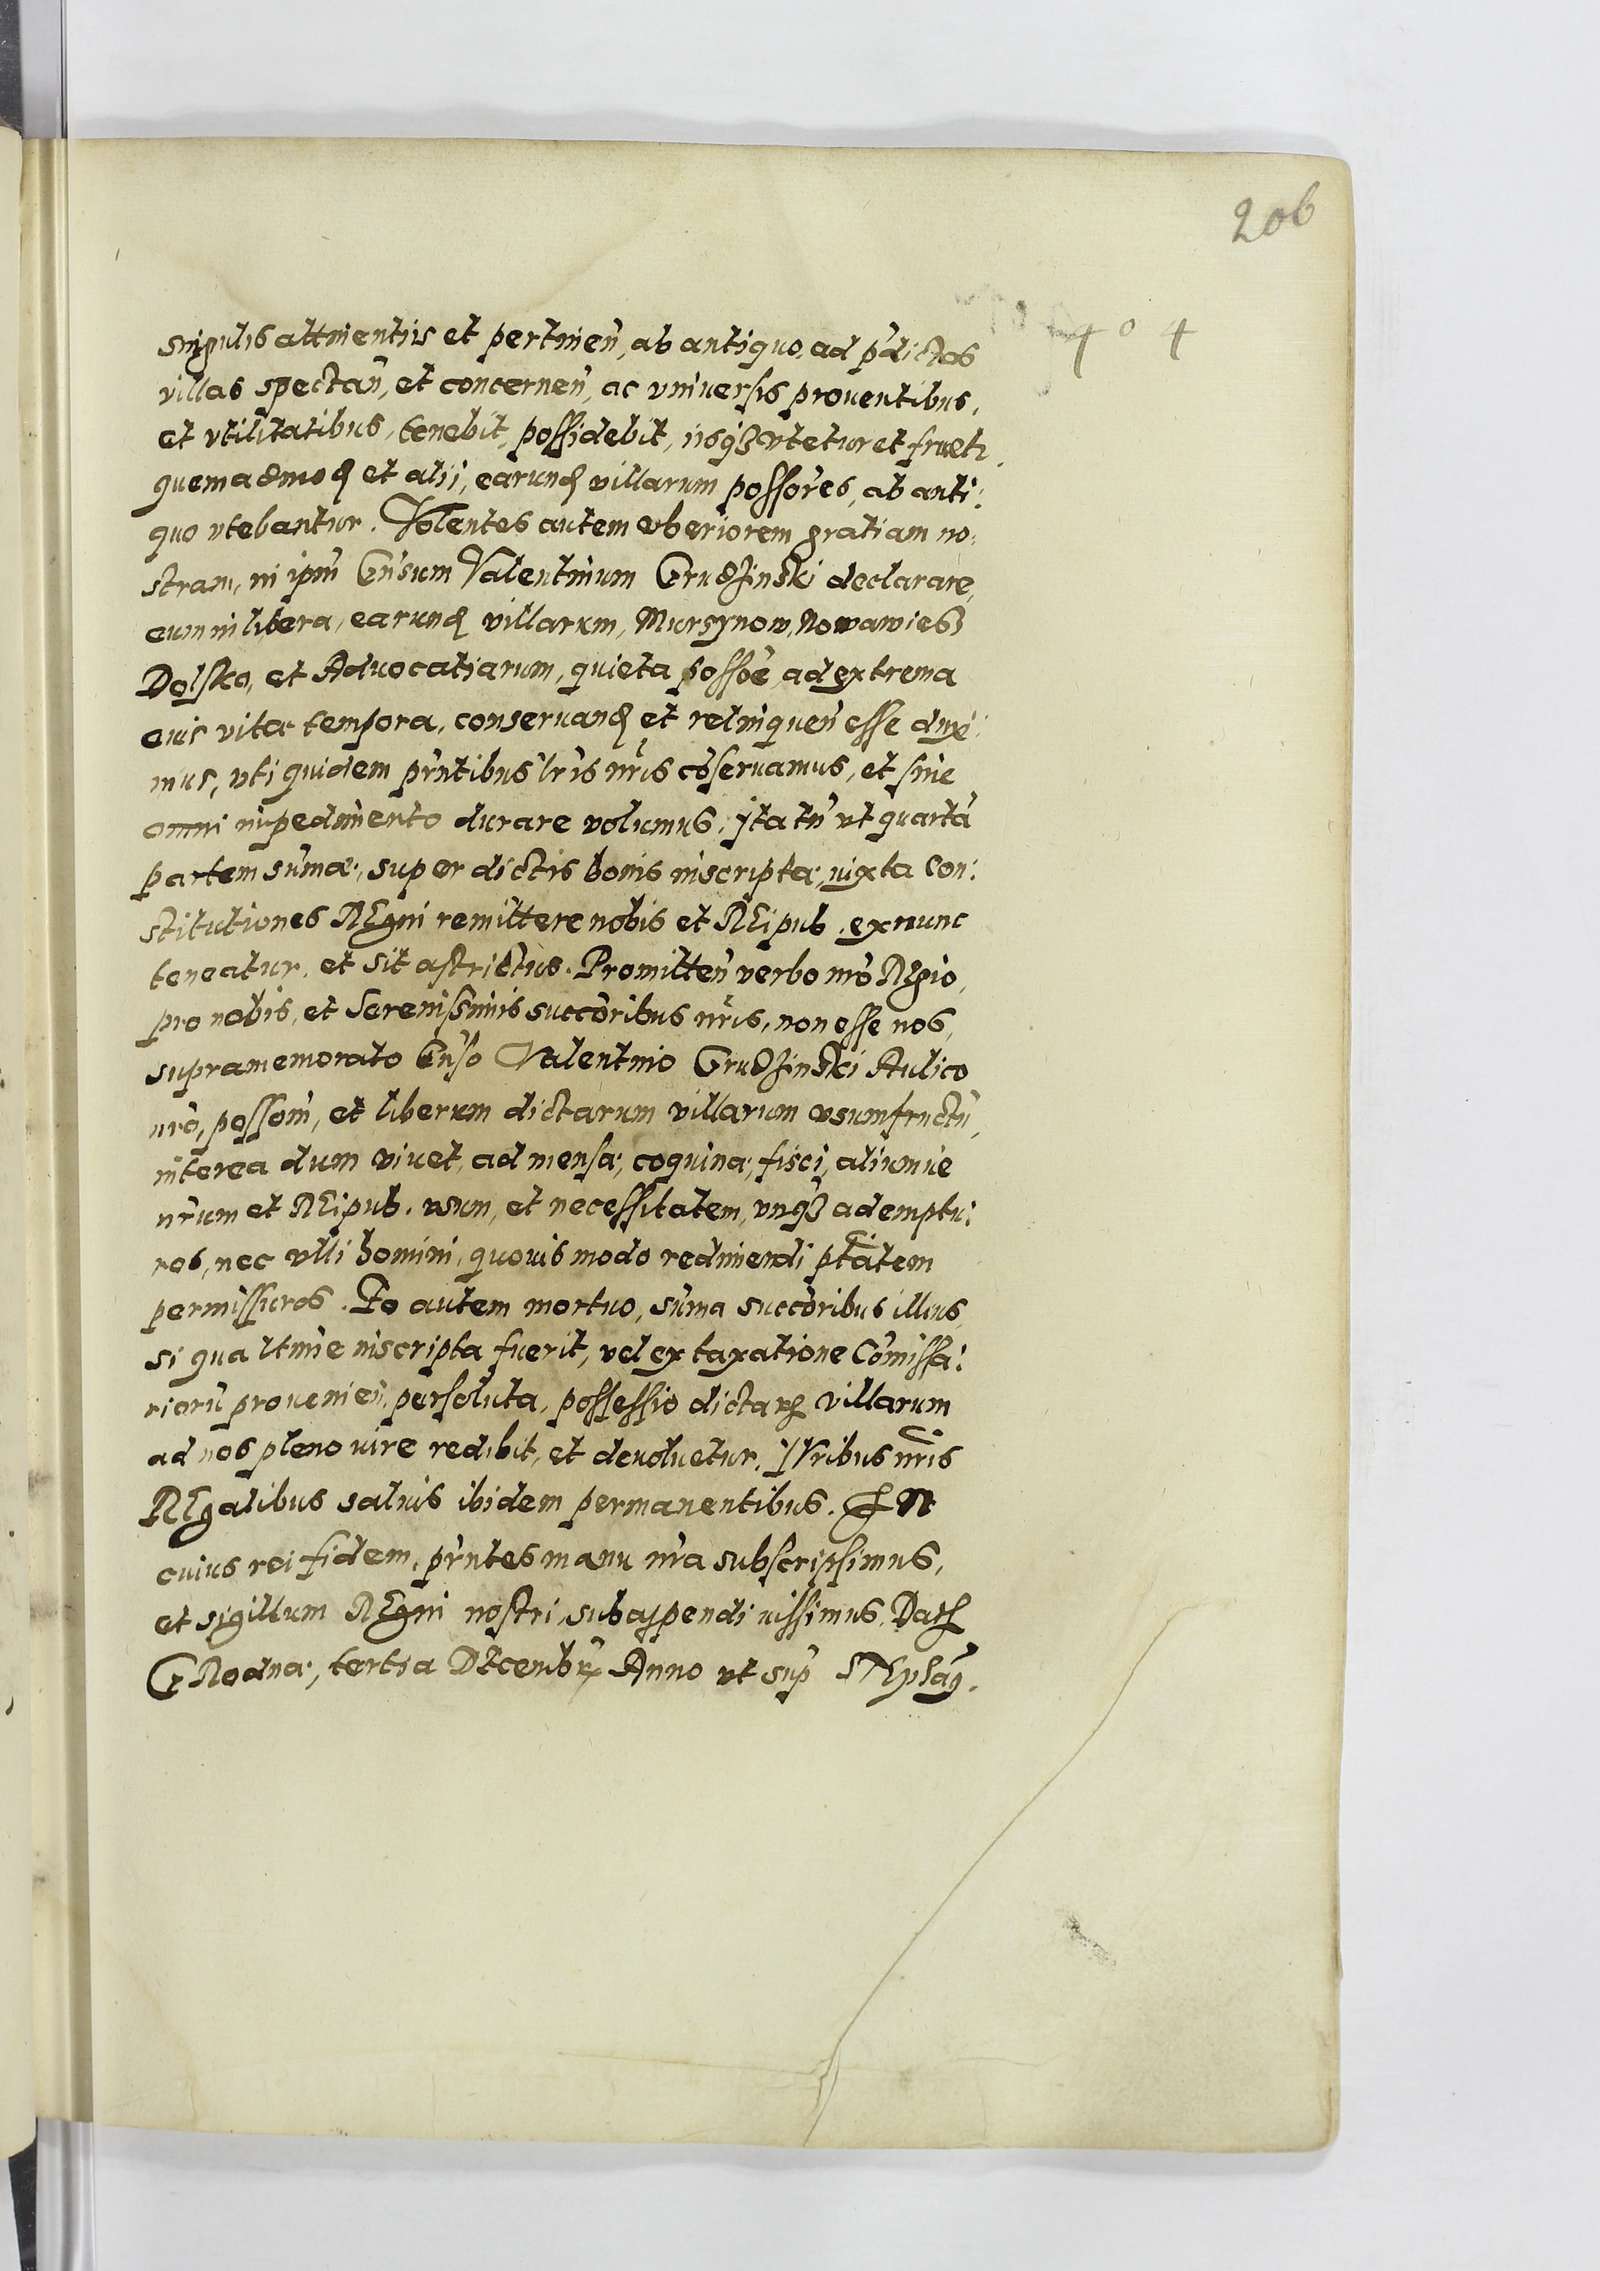 206
404
singulis attinentiis et pertinen̄, ab antiquo, ad p̄dictas
villas spectan̄, et concernen̄, ac vniuersis prouentibus,
et vtilitatibus, tenebit, possidebit, iisq3 vtetur et fruet̄
quemadmod et alij, earund villarum possōres, ab anti:
quo vtebantur. Volentes autem vberiorem gratiam no:
stram, in ipm̄ Gn̄sum Valentinum Grudzinski declarare,
eum in libera, earund villarum, Mursynow, Nowawies3
Dolsko, et Aduocatiarum, quieta possōē, ad extrema
euis vitæ tempora, conseruand et relinquen̄ esse duxi:
mus, vti quidem pn̄tibus lr̄is nr̄is cōseruamus, et sine
omni impedimento durare volumus. Ita tn̄ vt quartā
partem sūmæ, super dictis bonis inscriptæ, iuxta Con:
stitutiones REgni remittere nobis et REipub. ex nunc
teneatur, et sit astrictus. Promitten̄ verbo nr̄o REgio,
pro nobis, et Serenissimis succōribus nr̄is, non esse nos,
supramemorato Gn̄so Valentino Grudzinski Aulico
nr̄o, possom̄, et liberum dictarum villarum vsumfructū,
interea dum viuet, ad mensæ, coquinæ, fisci, aliumue
nr̄um et REipub. vsum, et necessitatem, vnq3 ademptu:
ros, nec vlli homini, quouis modo redimendi ptātem
permissuros. Eo autem mortuo, sūma succōribus illius,
si qua ltimē inscripta fuerit, vel ex taxatione Cōmissa:
riorū prouenien̄, persoluta, possessio dictarꝝ villarum
ad nos pleno iure redibit, et deuoluetur. IVribus nr̄is
REgalibus saluis ibidem permanentibus. In
cuius rei fidem, pn̄tes manu nr̄a subscripsimus,
et sigillum REgni nostri, subappendi iussimus. Datꝝ
GRodnæ, tertia DEcembrꝭ Anno vt sup̄